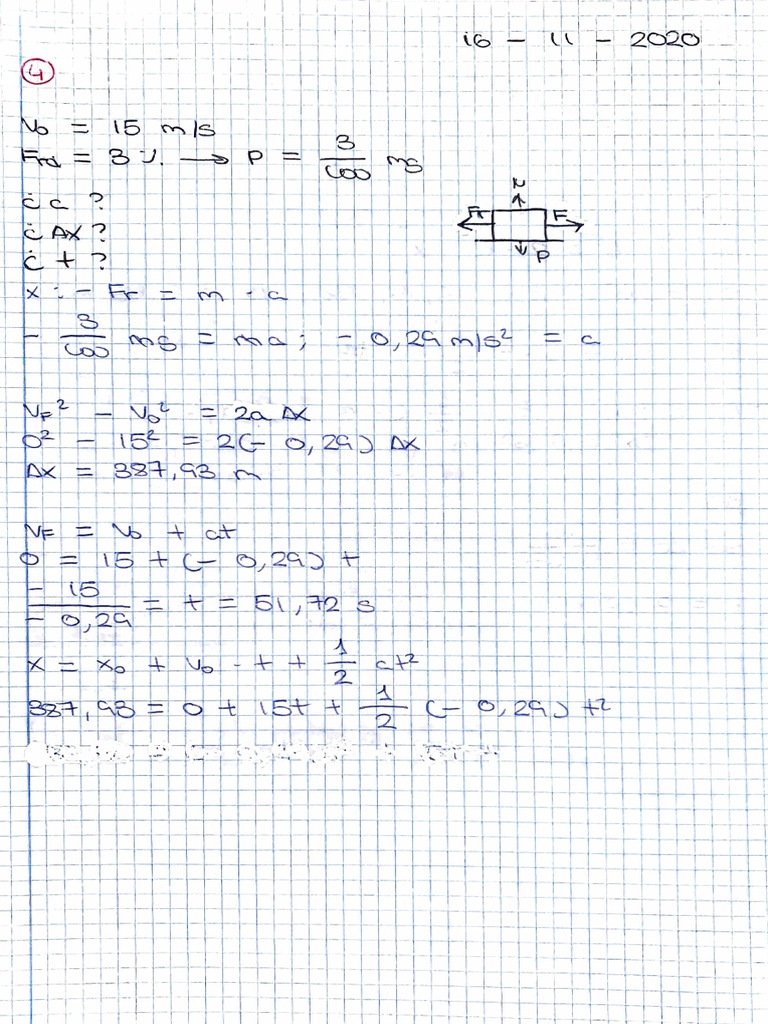 16 - 11 - 2020
4
V₀ = 15 m/s
Frd = 3 % → P = 3/100 mg
¿ a ?
¿ Δx ?
¿ t ?
N
Fr F
P
x : - Fr = m · a
- 3/100 mg = ma ; - 0,29 m/s² = a
VF² - V₀² = 2a Δx
0² - 15² = 2(- 0,29) Δx
Δx = 387,93 m
VF = V₀ + at
0 = 15 + (- 0,29) t
- 15 / - 0,29 = t = 51,72 s
x = x₀ + v₀ · t + 1/2 at²
387,93 = 0 + 15t + 1/2 (- 0,29) t²